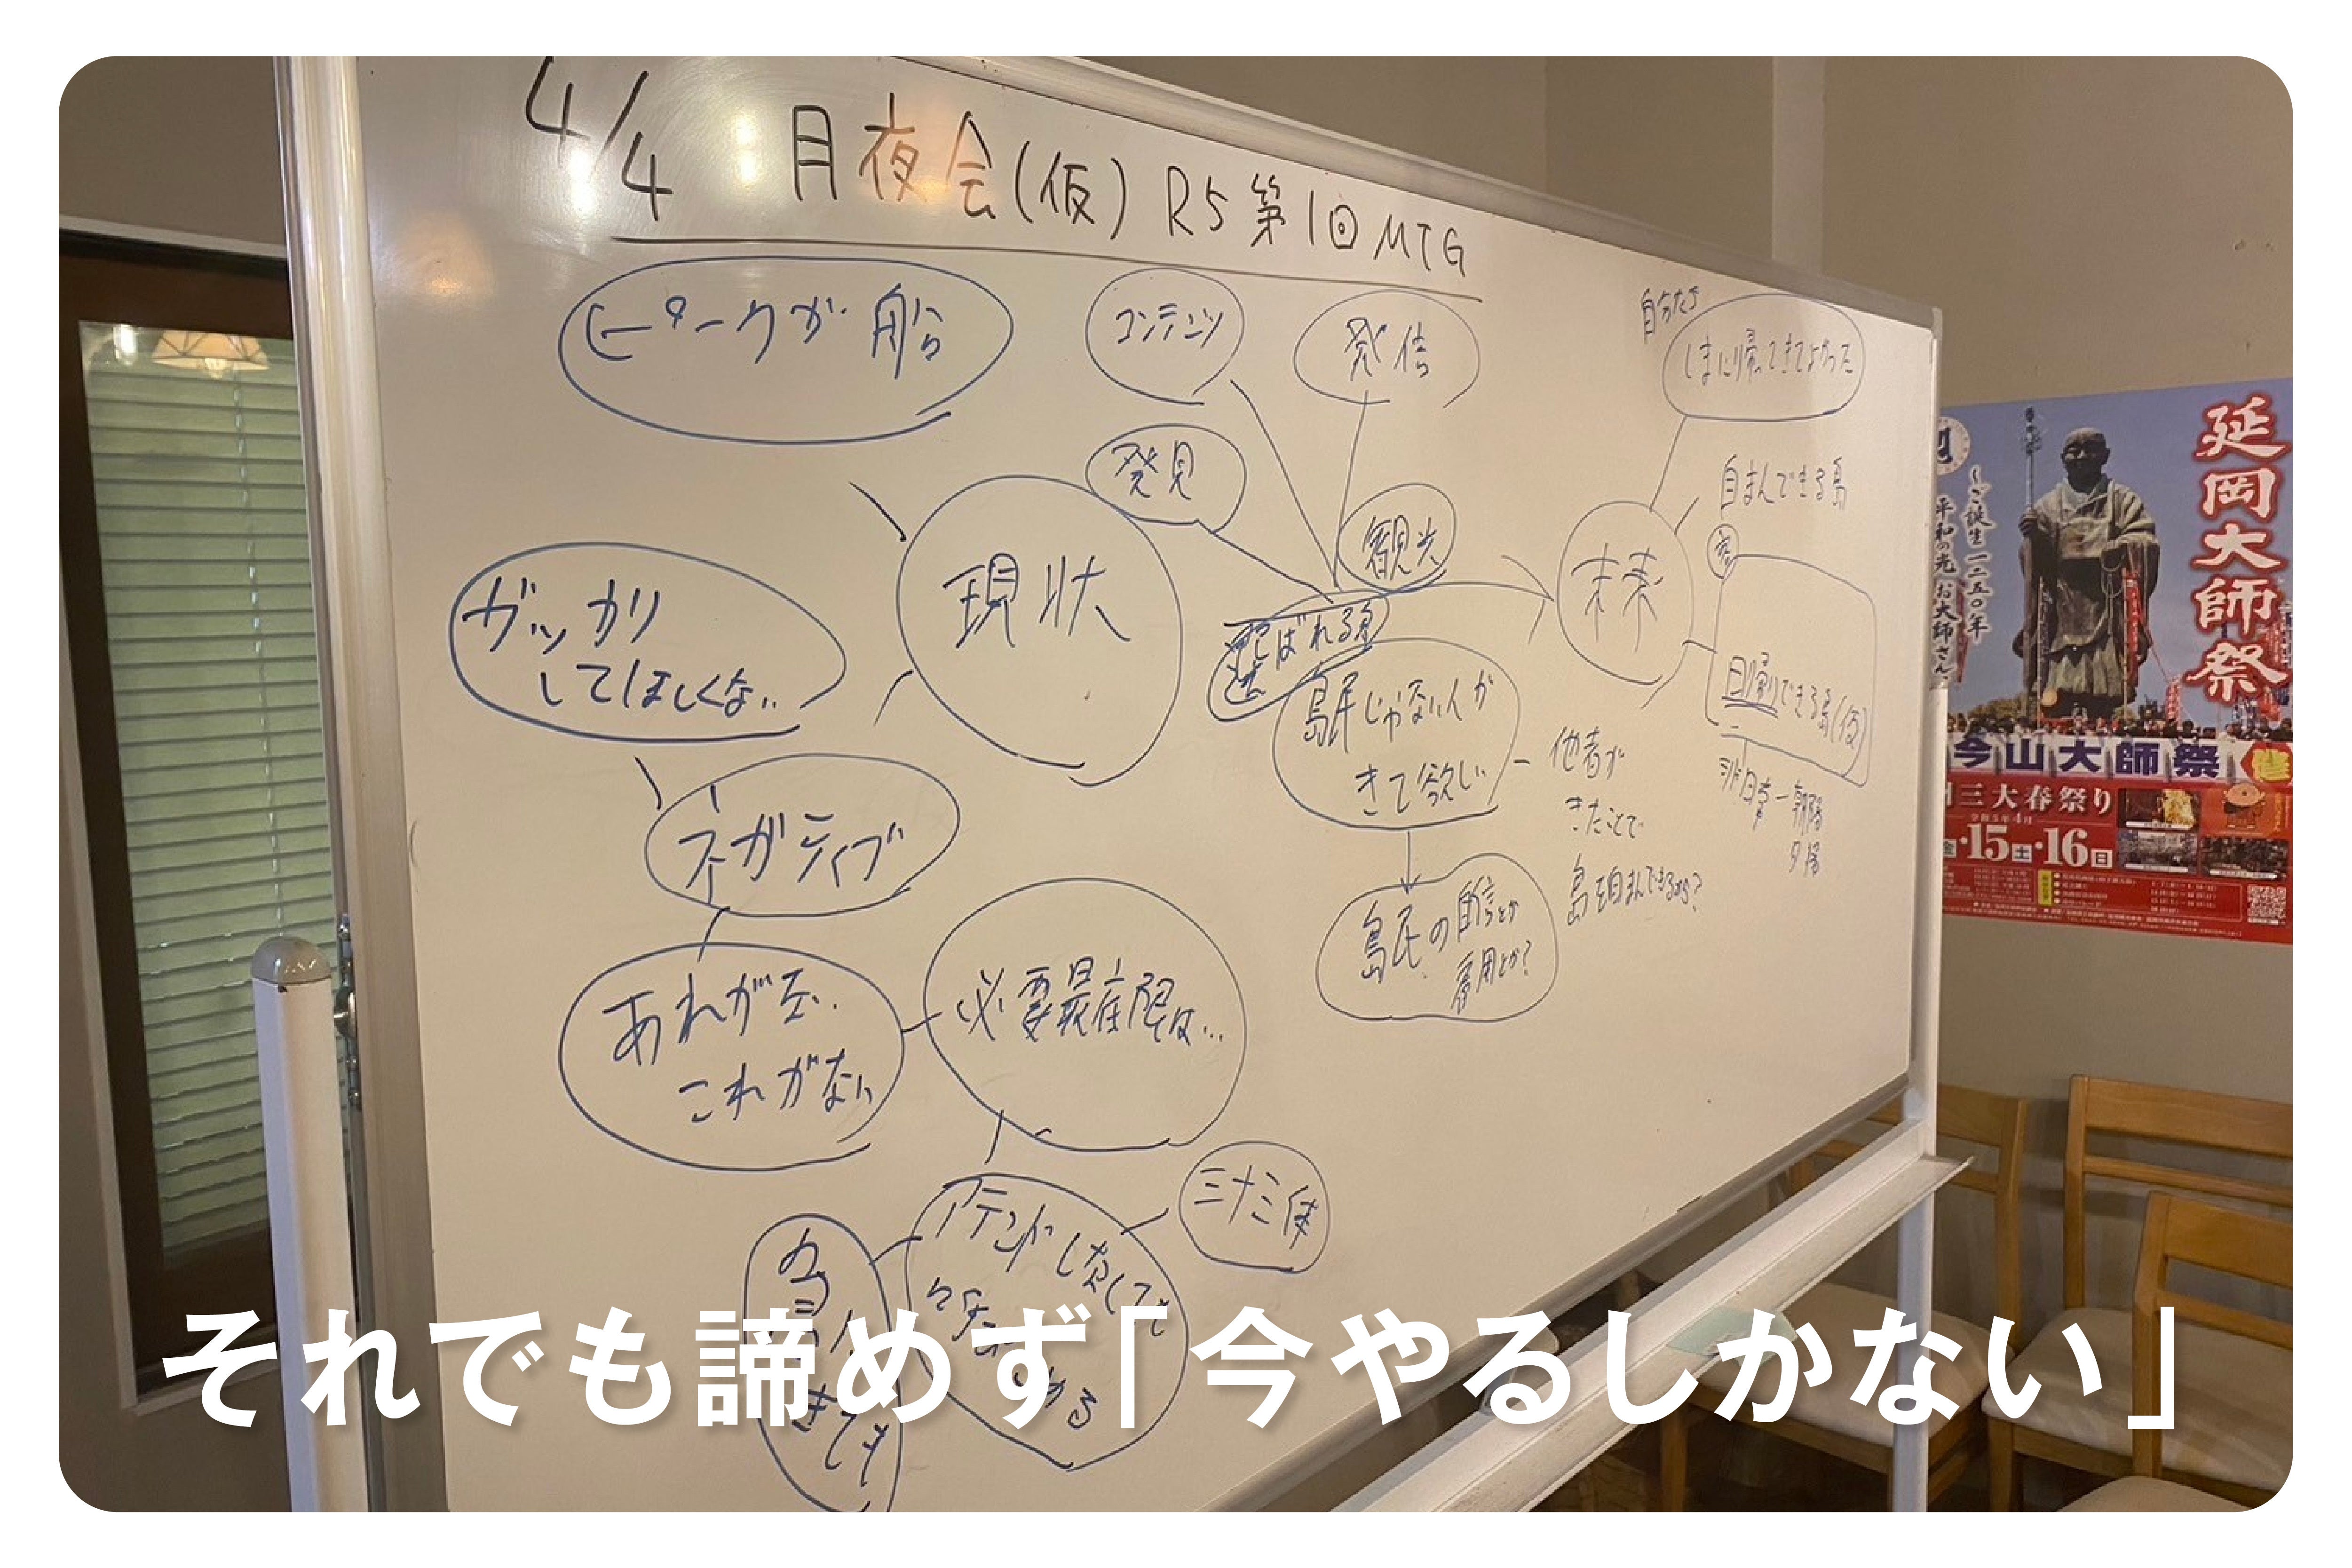 4/4 月夜会(仮) R5 第1回 MTG
ピークが船
コンテンツ
発信
自分たち
しまに帰ってきてよかった
発見
観光
現状
未来
自まんできる島
選ばれる島
ガッカリ
してほしくない
島民じゃない人が
きて欲しい
他者が
きたことで
島を自まんできるかも?
日帰りできる島(仮)
非日常ー朝陽
夕陽
ネガティブ
島民の自信とか
雇用とか?
あれがない
これがない
必要最低限は…
三十三体
アテンドしなくても
きても
延岡大師祭
〜ご誕生一二五〇年
平和の光 お大師さん
今山大師祭
三大春祭り
令和5年4月
15土・16日
それでも諦めず「今やるしかない」